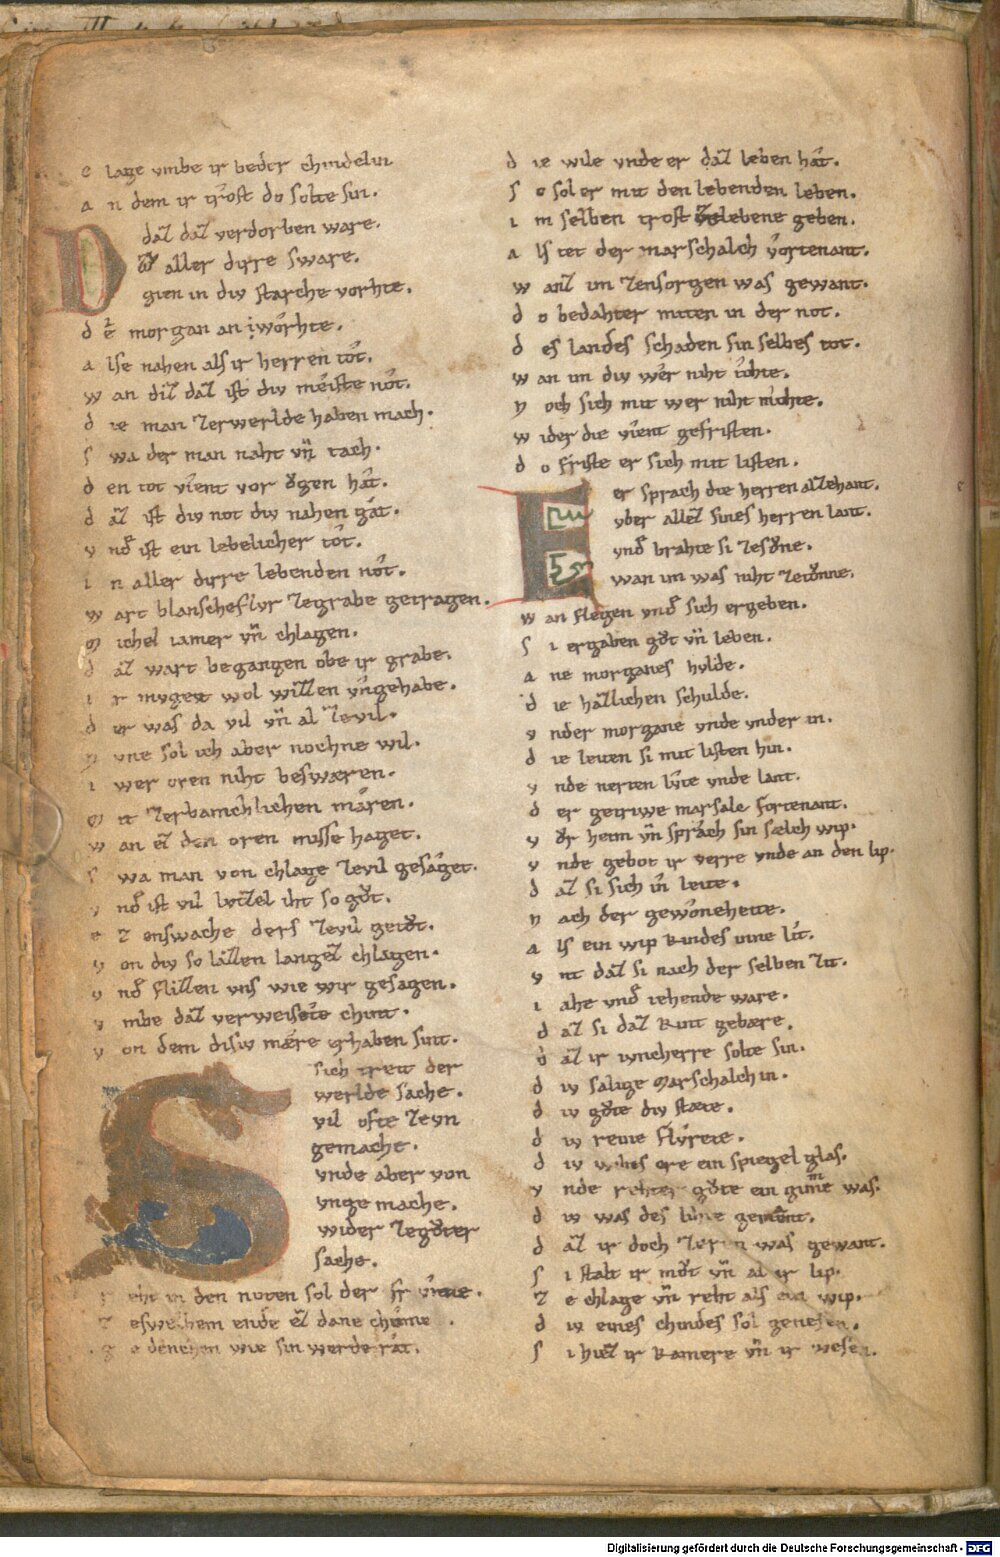 c lage vmbe ir beder chindelin
a n dem ir trost do solte sin.
D daz daz verdorben ware.
vor aller dirre sware.
gien in div starche vorhte.
d ie morgan an iworhte.
a lse nahen als ir herren tôt.
w an diz daz ist div meiste nôt.
d ie man zerwerlde haben mach.
s wa der man naht vn̄ tach.
d en tot vient vor ovgen hât.
d az ist div not div nahen gât.
v nd ist ein lebelicher tôt.
i n aller dirre lebenden nôt.
w art blanscheflvr zegrabe getragen.
m ichel iamer vn̄ chlagen.
d az wart begangen obe ir grabe.
i r mvget wol wizzen vngehabe.
d er was da vil vn̄ al zevil.
n vne sol ich aber nochne wil.
i wer oren niht beswæren.
m it zerbamchlichen mæren.
w an ez den oren misse haget.
s wa man von chlage zevil gesaget.
v nd ist vil lvzzel iht so gvot.
e z enswache ders zevil getvot.
v on div so lazzen langez chlagen.
v nd flizzen vns wie wir gesagen.
v mbe daz verweisete chint.
v on dem disiv mære irhaben sint.
S sich treit der
werlde sache.
vil ofte zevn
gemache.
vnde aber von
vnge mache.
wider zegvoter
sache.
eht in den noten sol der
z eswelhem ende ez dane chôme.
g e denchen wie sin werde rât.
d ie wile vnde er daz leben hât.
s o sol er mit den lebenden leben.
i m selben trost zelebene geben.
a ls tet der marschalch vortenant.
w anz im zensorgen was gewant.
d o bedahter miten in der not.
d es landes schaden sin selbes tot.
w an im div wer niht tohte.
n och sich mit wer niht mohte.
w ider die vient gefristen.
d o friste er sich mit listen.
E er sprach die herren alzehant.
vber allez sines herren lant.
vnd brahte si zesvone.
wan im was niht zetvonne.
w an flegen vnd sich ergeben.
s i ergaben gvot vn̄ leben.
a ne morganes hvlde.
d ie hazlichen schulde.
v nder morgane vnde vnder in.
d ie leiten si mit listen hin.
v nde nerten lvte vnde lant.
d er getriwe marsale fortenant.
v vor heim vn̄ sprach sin sælch wip.
v nde gebot ir verre vnde an den lip.
d az si sich in leite.
n ach der gewoneheite.
a ls ein wip kindes inne lît.
v nt daz si nach der selben zit.
i ahe vnd iehende ware.
d az si daz kint gebære.
d az ir ivncherre solte sin.
d iv salige marschalchin.
d iv gvote div stæte.
d iv reine flvrete.
d iv wibes ere ein spiegel glas.
v nde rehter gvote ein gimme was.
d iv was des
d az ir doch was gewant.
s i stalt ir mvot vn̄ al ir lip.
z e chlage vn̄ reht als ein wip.
d iv eines chindes sol genesen.
s i hiez ir kamere vn̄ ir wesen.
Digitalisierung gefördert durch die Deutsche Forschungsgemeinschaft - DFG